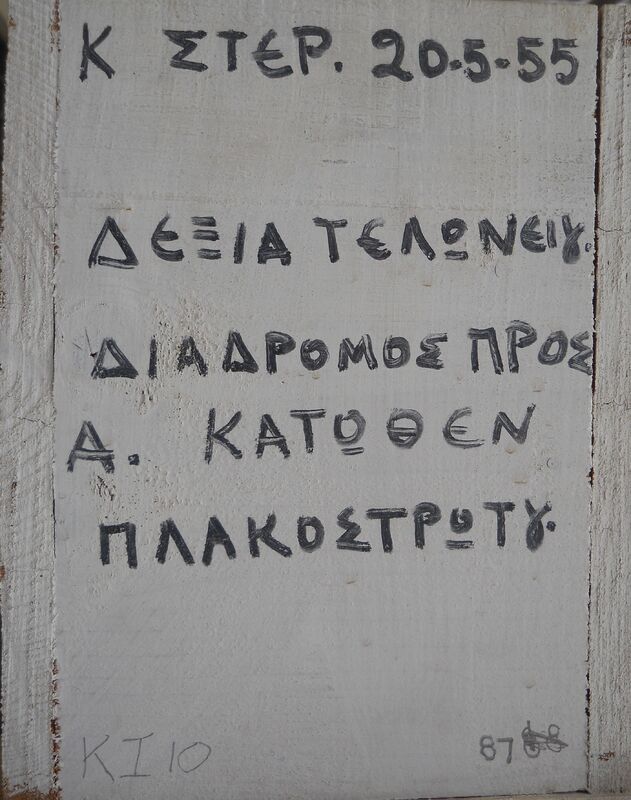 Κ ΣΤΕΡ. 20-5-55
ΔΕΞΙΑ ΤΕΛΩΝΕΙȢ.
ΔΙΑΔΡΟΜΟΣ ΠΡΟΣ
Α. ΚΑΤΩΘΕΝ
ΠΛΑΚΟΣΤΡΩΤȢ.
ΚΙ10 87